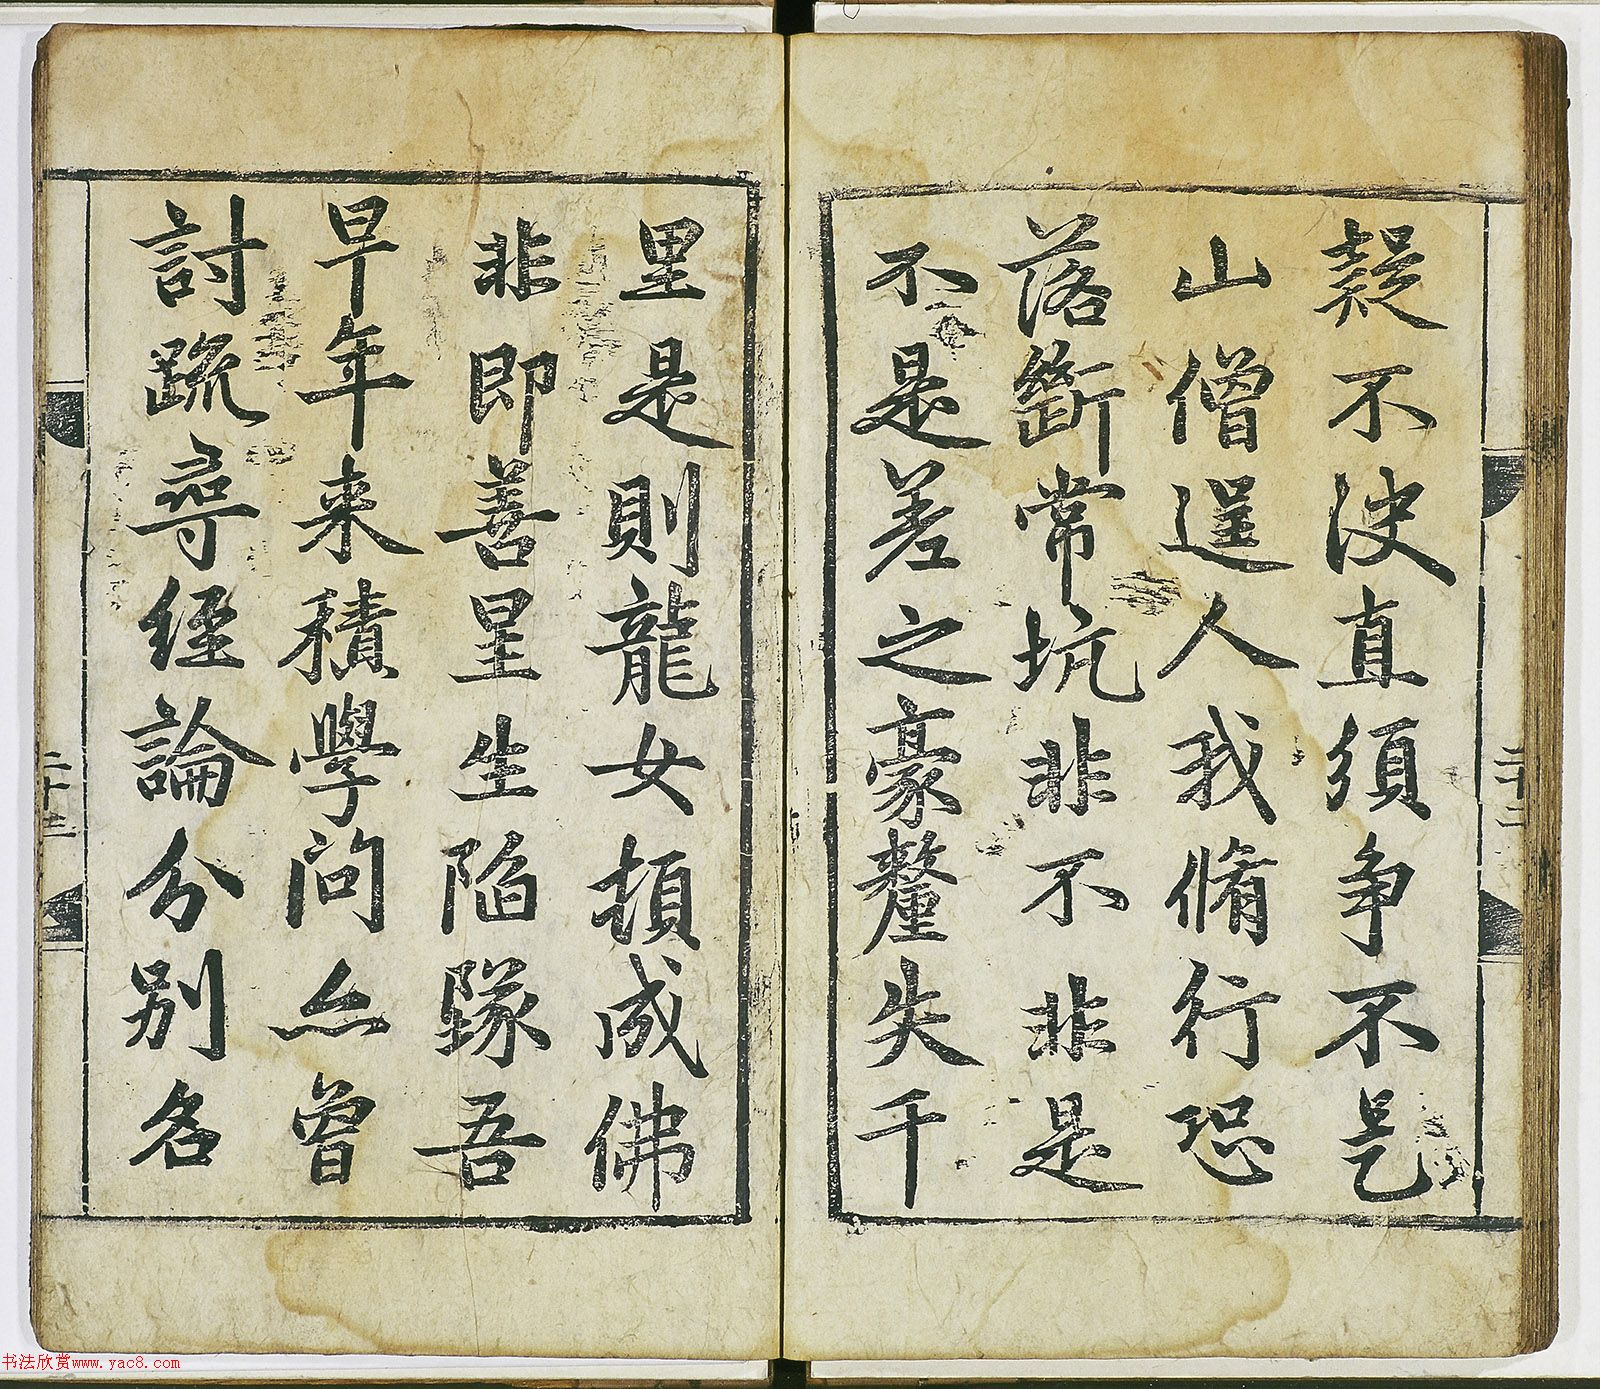 疑不決直須争不是
山僧逞人我脩行恐
落斷常坑非不非是
不是差之豪釐失千
里是則龍女頓成佛
非即善星生陷墜吾
早年来積學問亦曾
討疏尋経論分别名
二十二
二十三
书法欣赏www.yac8.com